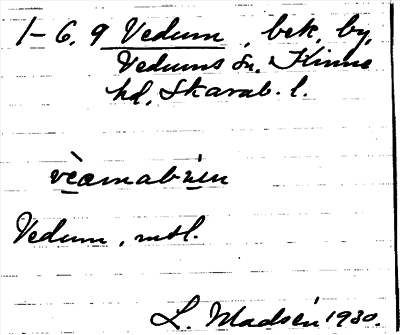 1-6, 9 Vedum, bek. by,
Vedums sn, Kinne
hd, Skarab. l.
Vedum, mtl.
L. Madsén 1930.